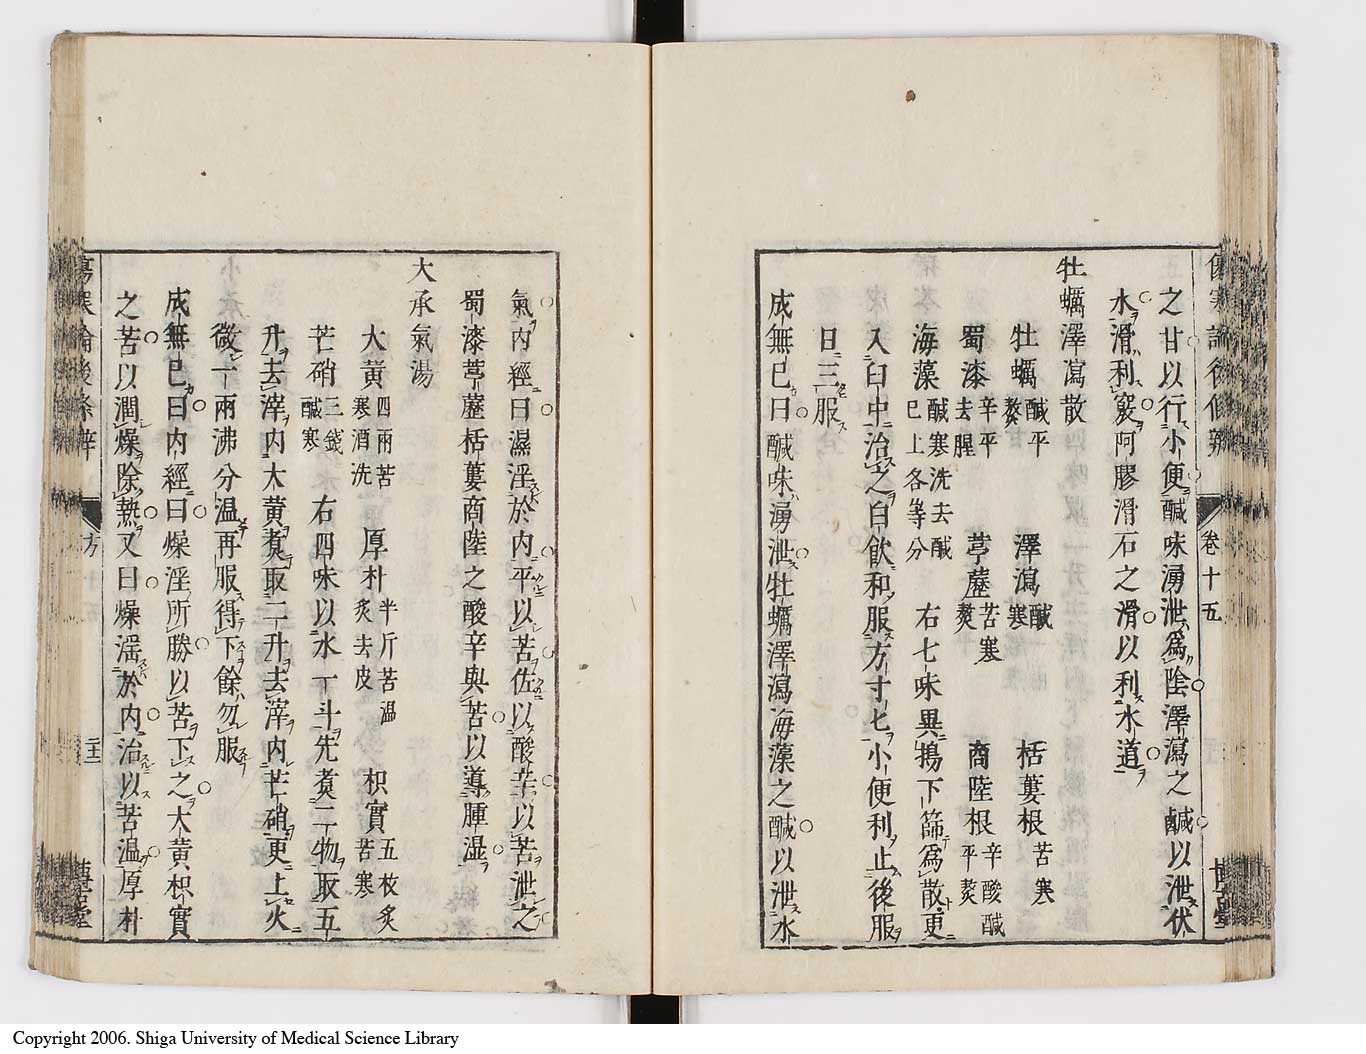 之甘以行小便鹹味湧泄為陰澤瀉之鹹以泄伏
水滑利竅阿膠滑石之滑以利水道
牡蠣澤瀉散
牡蠣 鹹平熬 澤瀉 鹹寒 栝蔞根 苦寒
蜀漆 辛平去腥 葶藶 苦寒熬 商陸根 辛酸鹹平熬
海藻 鹹寒洗去鹹已上各等分 右七味異搗下篩為散更
入臼中治之白飲和服方寸匕小便利止後服
日三服
成無已曰鹹味湧泄牡蠣澤瀉海藻之鹹以泄水
氣內經曰濕淫於內平以苦佐以酸辛以苦泄之
蜀漆葶藶栝蔞商陸之酸辛與苦以導腫湿
大承氣湯
大黃 四兩苦寒酒洗 厚朴 半斤苦温炙去皮 枳實 五枚炙苦寒
芒硝 三錢鹹寒 右四味以水一斗先煑二物取五
升去滓內大黃煑取二升去滓內芒硝更上火
微一兩沸分温再服得下餘勿服
成無已曰內經曰燥淫所勝以苦下之大黃枳實
之苦以潤燥除熱又曰燥滛於內治以苦温厚朴
傷寒論後條辨
卷十五
方
二十二
博古堂
Copyright 2006. Shiga University of Medical Science Library